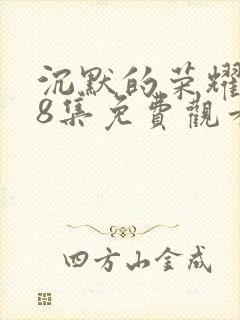 沉默的荣耀
8集免費觀
四方山金成